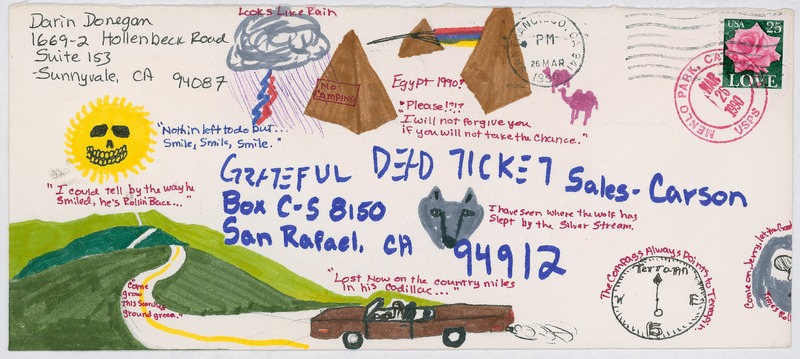 Darin Donegan
1669-2 Hollenbeck Road
Suite 153
Sunnyvale, CA 94087
Looks Like Rain
NO
CAMPING
Egypt 1990?
"Please!?!?
I will not forgive you
if you will not take the chance."
SAN FRANCISCO, CA 941
PM
26 MAR
1990
USA 25
LOVE
MENLO PARK, CA
MAR
26
1990
USPS
"Nothin left to do but...
Smile, Smile, Smile."
GRATEFUL DEAD TICKET Sales-Carson
Box C-S 8150
San Rafael, CA
94912
"I could tell by the way he
Smiled, he's Rollin Back..."
I have seen where the wolf has
Slept by the Silver Stream.
"Lost Now on the country miles
in his Cadillac..."
"Come
grow
this
ground green."
The Compass Always Points to Terrapin.
Terrapin
W
E
Come on Jerry, let the Good
Times Roll